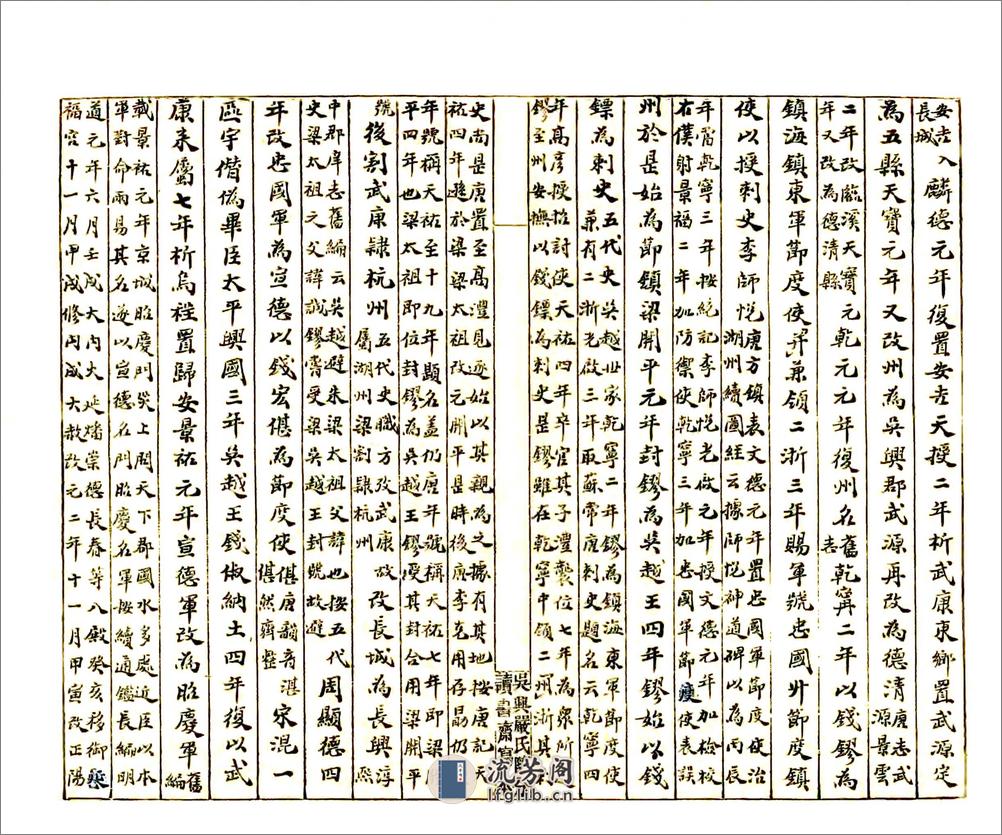 安吉入
長城
麟德元年復置安吉天授二年析武康東鄉置武源定
為五縣天寶元年又改州為吳興郡武源再改為德清
唐志武
源景雲
二年改臨溪天寶元
年又改為德清縣
乾元元年復州名
舊
志
乾寧二年以錢鏐為
鎮海鎮東軍節度使并兼領二浙三年賜軍號忠國廾節度鎮
使以授刺史李師悅
唐方鎮表文德元年置忠國軍節度使治
湖州續圖經云據師悅神道碑以為丙辰
年當乾寧三年按統記李師悅光啟元年授文德元年加檢校
右僕射景福二年加防禦使乾寧三年加忠國軍節度使表誤
州於是始為節鎮梁開平元年封鏐為吳越王四年鏐始以錢
鏢為刺史
五代史吳越世家乾寧二年鏐為鎮海東軍節度使
兼有二浙光啟三年取蘇常唐刺史題名云乾寧四
年高彥授招討使天祐四年卒官其子灃襲位七年為眾所
鏐至州安撫以錢鏢為刺史是鏐雖在乾寧中領二州浙其
吳興嚴氏
讀書齋寫
史尚是唐置至高灃見逐始以其親為之據有其地按唐記天
祐四年遜於梁梁太祖改元開平是時後唐李克用存勗仍
年號稱天祐至十九年題名蓋仍唐年號稱天祐七年即梁
平四年也梁太祖即位封鏐為吳越王鏐受其封合用梁開平
號
後割武康隸杭州
五代史職方攷武康故
屬湖州梁割隸杭州
改長城為長興
淳
熙
中郡庠志舊編云吳越避朱梁太祖父諱也按五代
史梁太祖之父諱誠鏐嘗受梁吳越王封號故避
周顯德四
年改忠國軍為宣德以錢宏偡為節度使
偡唐韻音湛
偡然齊整
宋混一
區宇僭偽畢臣太平興國三年吳越王錢俶納土四年復以武
康來屬七年析烏程置歸安景祐元年宣德軍改為昭慶軍
舊
編
載景祐元年京城昭慶門災上聞天下郡國水多處近臣以本
軍對命兩易其名遂以宣德名門昭慶名軍按續通鑑長編明
道元年六月壬戌大內火延燔崇德長春等八殿癸亥移御延
福宮十一月甲戌修內成大赦改元二年十一月甲寅改正陽
流芳阁
lfglib.cn